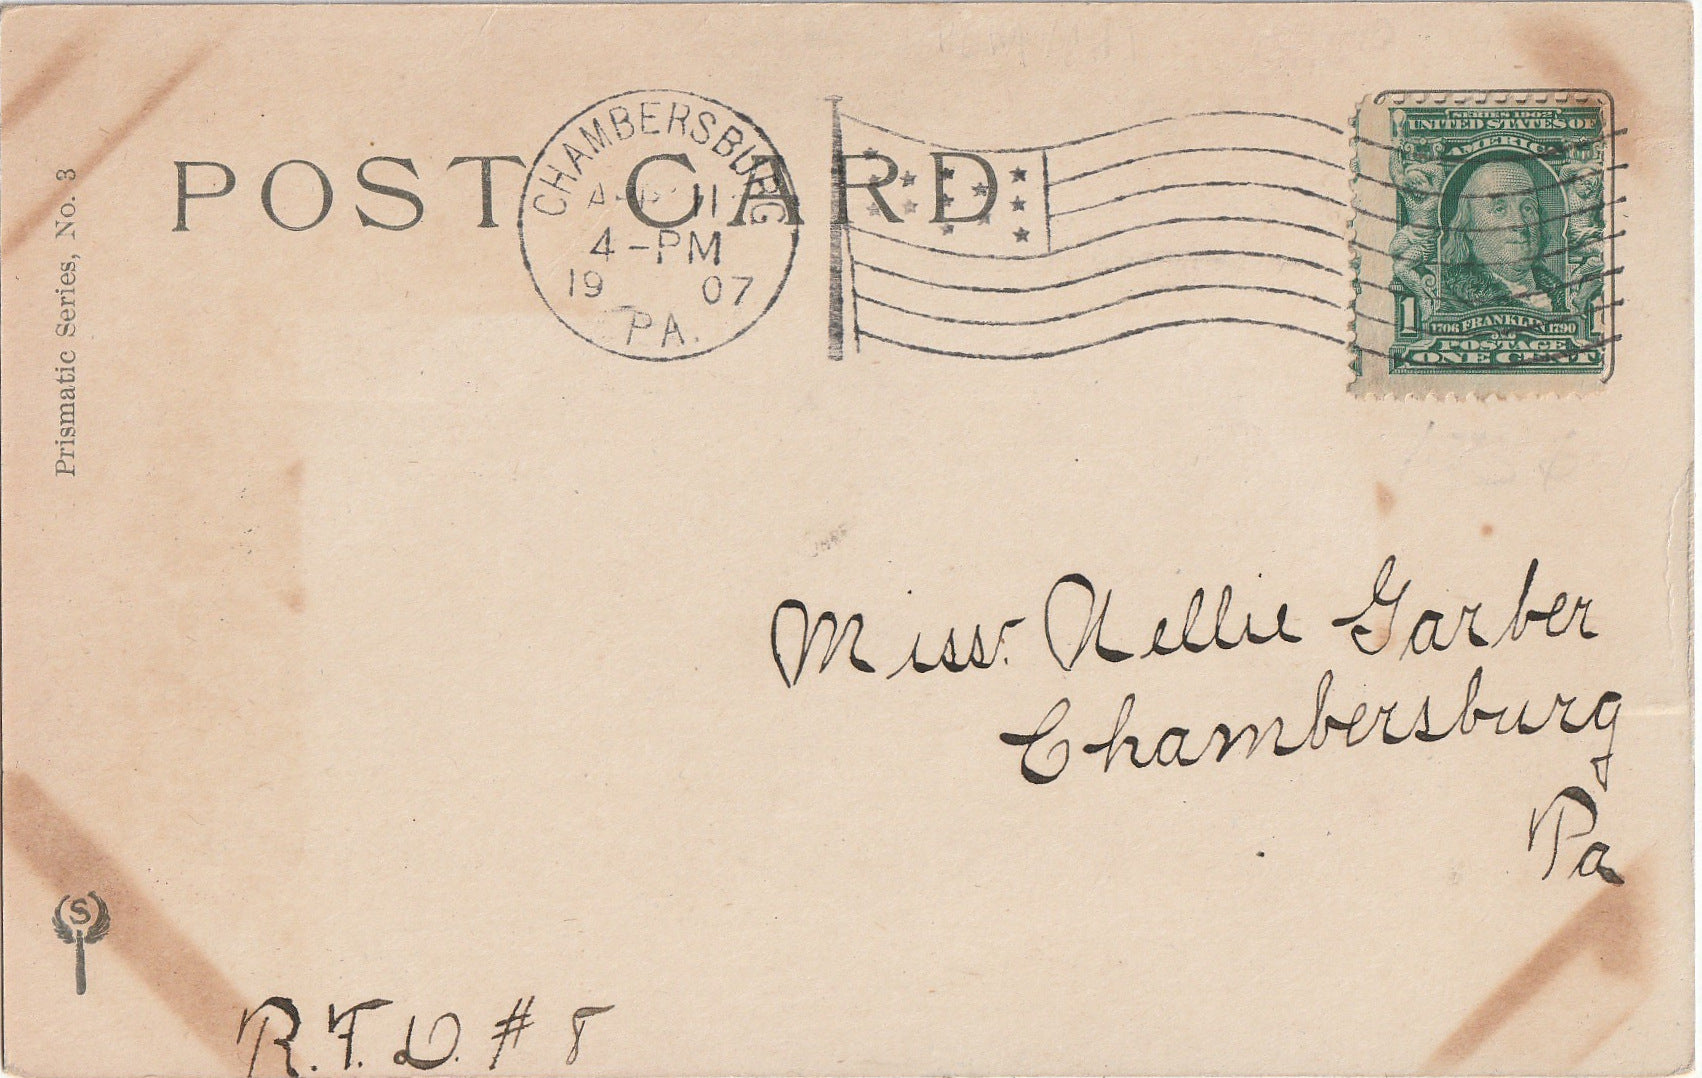 Prismatic Series, No. 3
POST CARD
CHAMBERSBURG
APR 11
4-PM
19 07
PA.
SERIES 1902
UNITED STATES OF
AMERICA
1
1706 FRANKLIN 1790
POSTAGE
ONE CENT
Miss. Nellie Garber
Chambersburg
Pa
S
R.F.D. # 8